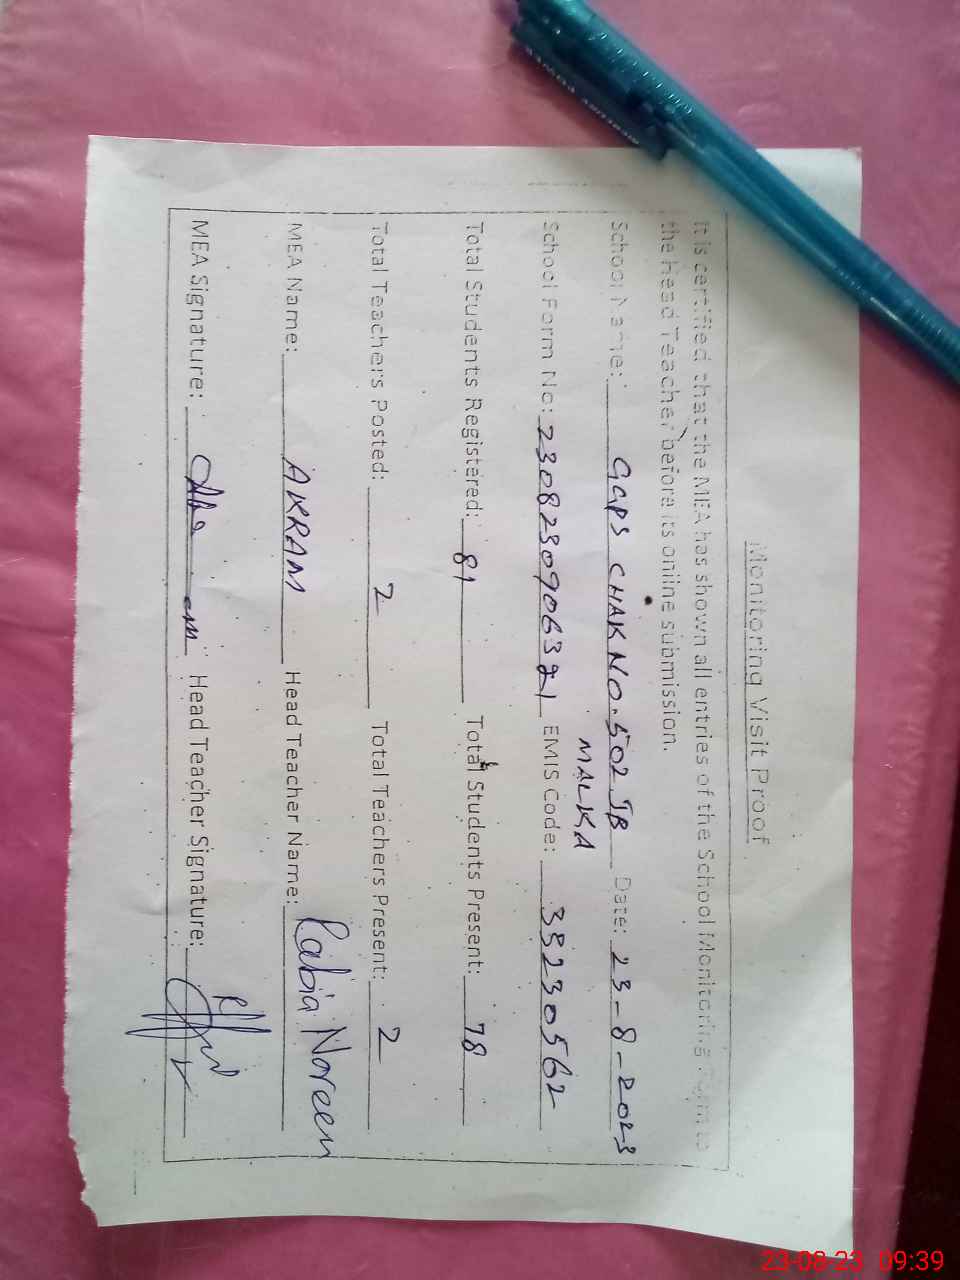 Monitoring Visit Proof
It is certified that the MEA has shown all entries of the School Monitoring Form to
the Head Teacher before its online submission.
School Name: GGPS CHAK NO. 502 JB Date: 23-8-2023
MALKA
School Form No: 2308230906321 EMIS Code: 33230562
Total Students Registered: 81 Total Students Present: 78
Total Teachers Posted: 2 Total Teachers Present: 2
MEA Name: AKRAM Head Teacher Name: Rabia Noreen
MEA Signature: Head Teacher Signature:
23-08-23 09:39